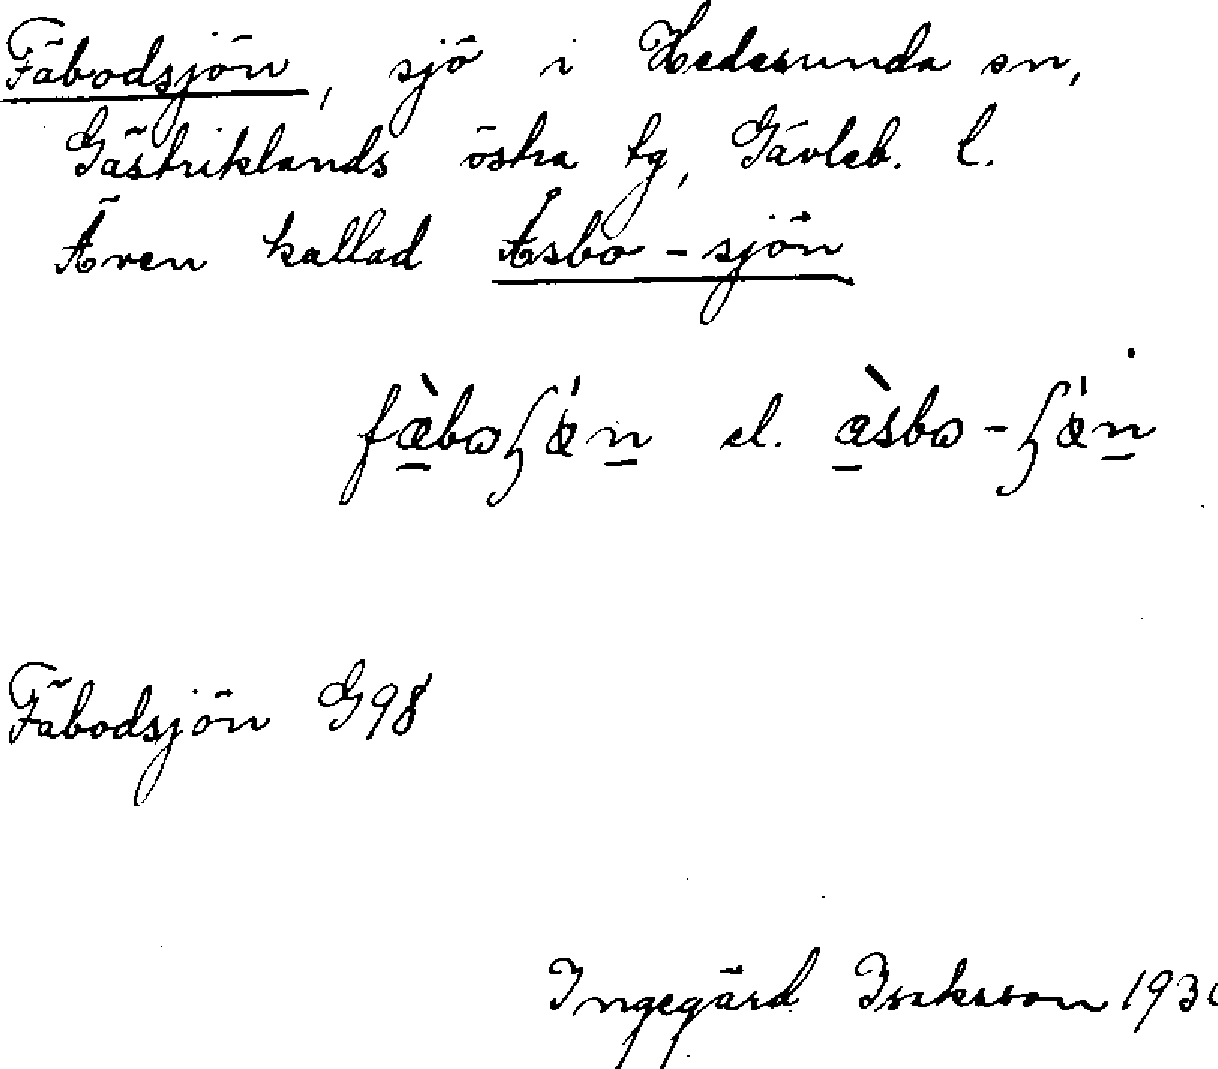 Fäbodsjön, sjö i Hedesunda sn,
Gästriklands östra tg, Gävleb. l.
Även kallad Åsbo-sjön
fæ̀boʃǿn el. æ̀sbo-ʃǿn
Fäbodsjön G98
Ingegärd Isaksson